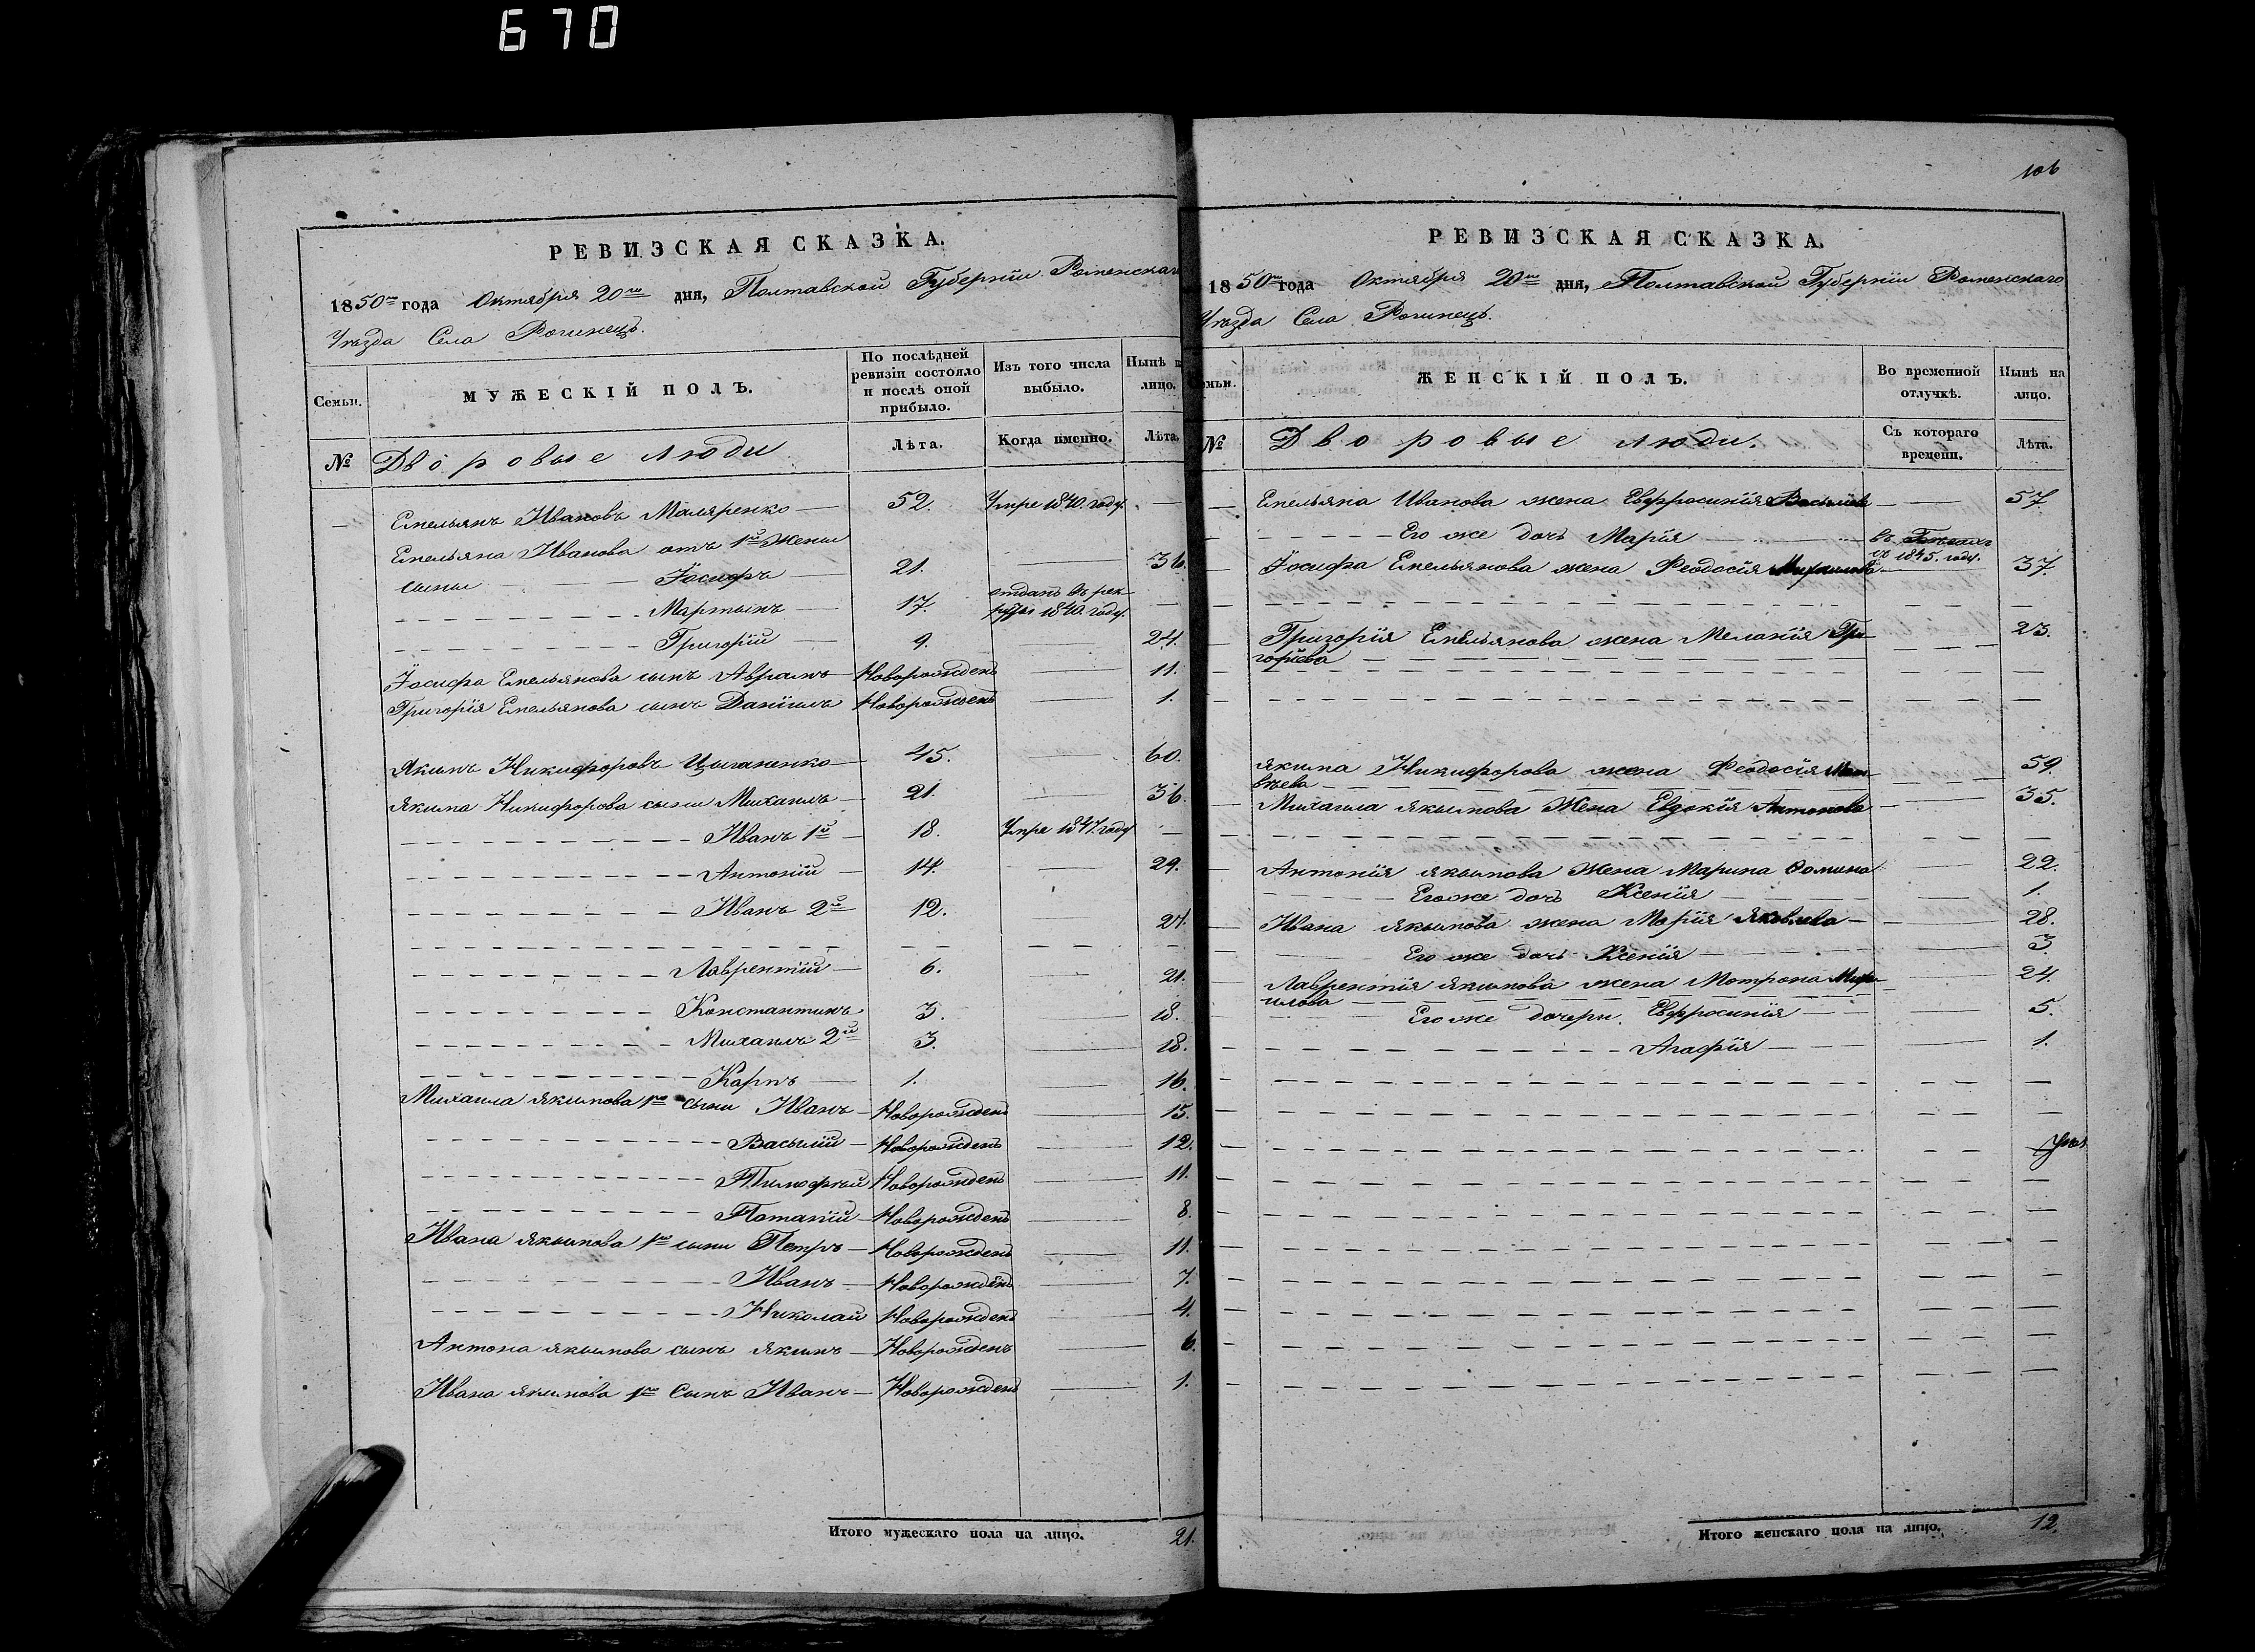 670
РЕВИЗСКАЯ СКАЗКА.
1850го года Октября 20го дня, Полтавской Губерніи Роменскаго
Уѣзда Села Рогинецъ.
Семьи. МУЖЕСКІЙ ПОЛЪ. По послѣдней ревизіи состояло и послѣ оной прибыло. Изъ того числа выбыло. Нынѣ на лицо.
№ Дворовые люди Лѣта. Когда именно. Лѣта.
Емельянъ Ивановъ Маляренко 52. Умре 1840. году. —
Емельяна Иванова отъ 1й Жены
сыны Іосифъ 21. — 36.
Мартынъ 17. отданъ въ рек-
руты 1840. году. —
Григорій 9. — 24.
Іосифа Емельянова сынъ Аврамъ Новорожденъ — 11.
Григорія Емельянова сынъ Даніилъ Новорожденъ — 1.
Якимъ Никифоровъ Цыганенко 45. — 60.
Якима Никифорова сыны Михаилъ 21. — 36.
Иванъ 1й 18. Умре 1847. году —
Антоній 14. — 29.
Иванъ 2й 12. 27.
Лаврентій 6. — 21.
Константинъ 3. — 18.
Михаилъ 2й 3. — 18.
Карпъ 1. — 16.
Михаила Якимова 1го сыны Иванъ Новорожденъ — 15.
Василій Новорожденъ — 12.
Тимофѣй Новорожденъ — 11.
Потапій Новорожденъ — 8.
Ивана Якимова 1го сыны Петръ Новорожденъ — 11.
Иванъ Новорожденъ — 7.
Николай Новорожденъ — 4.
Антона Якимова сынъ Якимъ Новорожденъ — 6.
Ивана Якимова 1го Сынъ Иванъ Новорожденъ — 1.
Итого мужескаго пола на лицо. 21.
106
РЕВИЗСКАЯ СКАЗКА.
1850го года Октября 20го дня, Полтавской Губерніи Роменскаго
Уѣзда Села Рогинецъ.
Семьи. ЖЕНСКІЙ ПОЛЪ. Во временной отлучкѣ. Нынѣ на лицо.
№ Дворовые люди. Съ котораго времени. Лѣта.
Емельяна Иванова жена Евфросинія Васильева — 57
Его же дочь Марія въ
съ 1845. году.
Іосифа Емельянова жена Феодосія Михаилова 37.
Григорія Емельянова жена Меланія Гри- 23.
горіева
Якима Никифорова жена Феодосія Мат- 59.
вѣева
Михаила Якимова Жена Евдокія Антонова — 35.
Антонія Якимова Жена Марина Фомина — 22.
Его же дочь Ксенія 1.
Ивана Якимова жена Марія Яковлева — 28.
Его же дочь Ксенія — 3
Лаврентія Якимова жена Мотрона Миха- 24.
илова
Его же дочери Евфросинія — 5.
Агафія — 1.
Итого женскаго пола на лицо. 12.